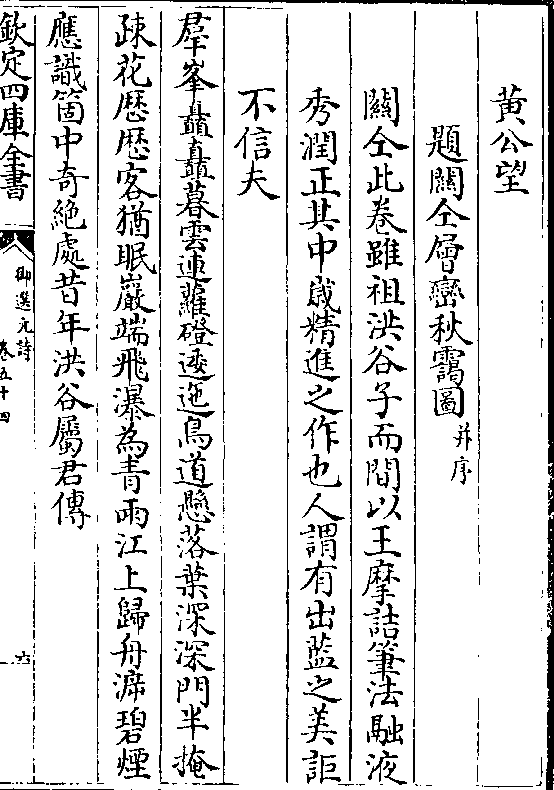 黄公望
題關仝層巒秋靄圖并序
關仝此卷雖祖洪谷子而間以王摩詰筆法融液
秀潤正其中歲精進之作也人謂有出藍之美詎
不信夫
羣峯矗矗暮雲連蘿磴逶迤鳥道懸落葉深深門半掩
疎花歴歴客猶眠巖端飛瀑為青雨江上歸舟漾碧煙
應識箇中奇絶處昔年洪谷屬君傳
欽定四庫全書
御選元詩
卷五十四
六